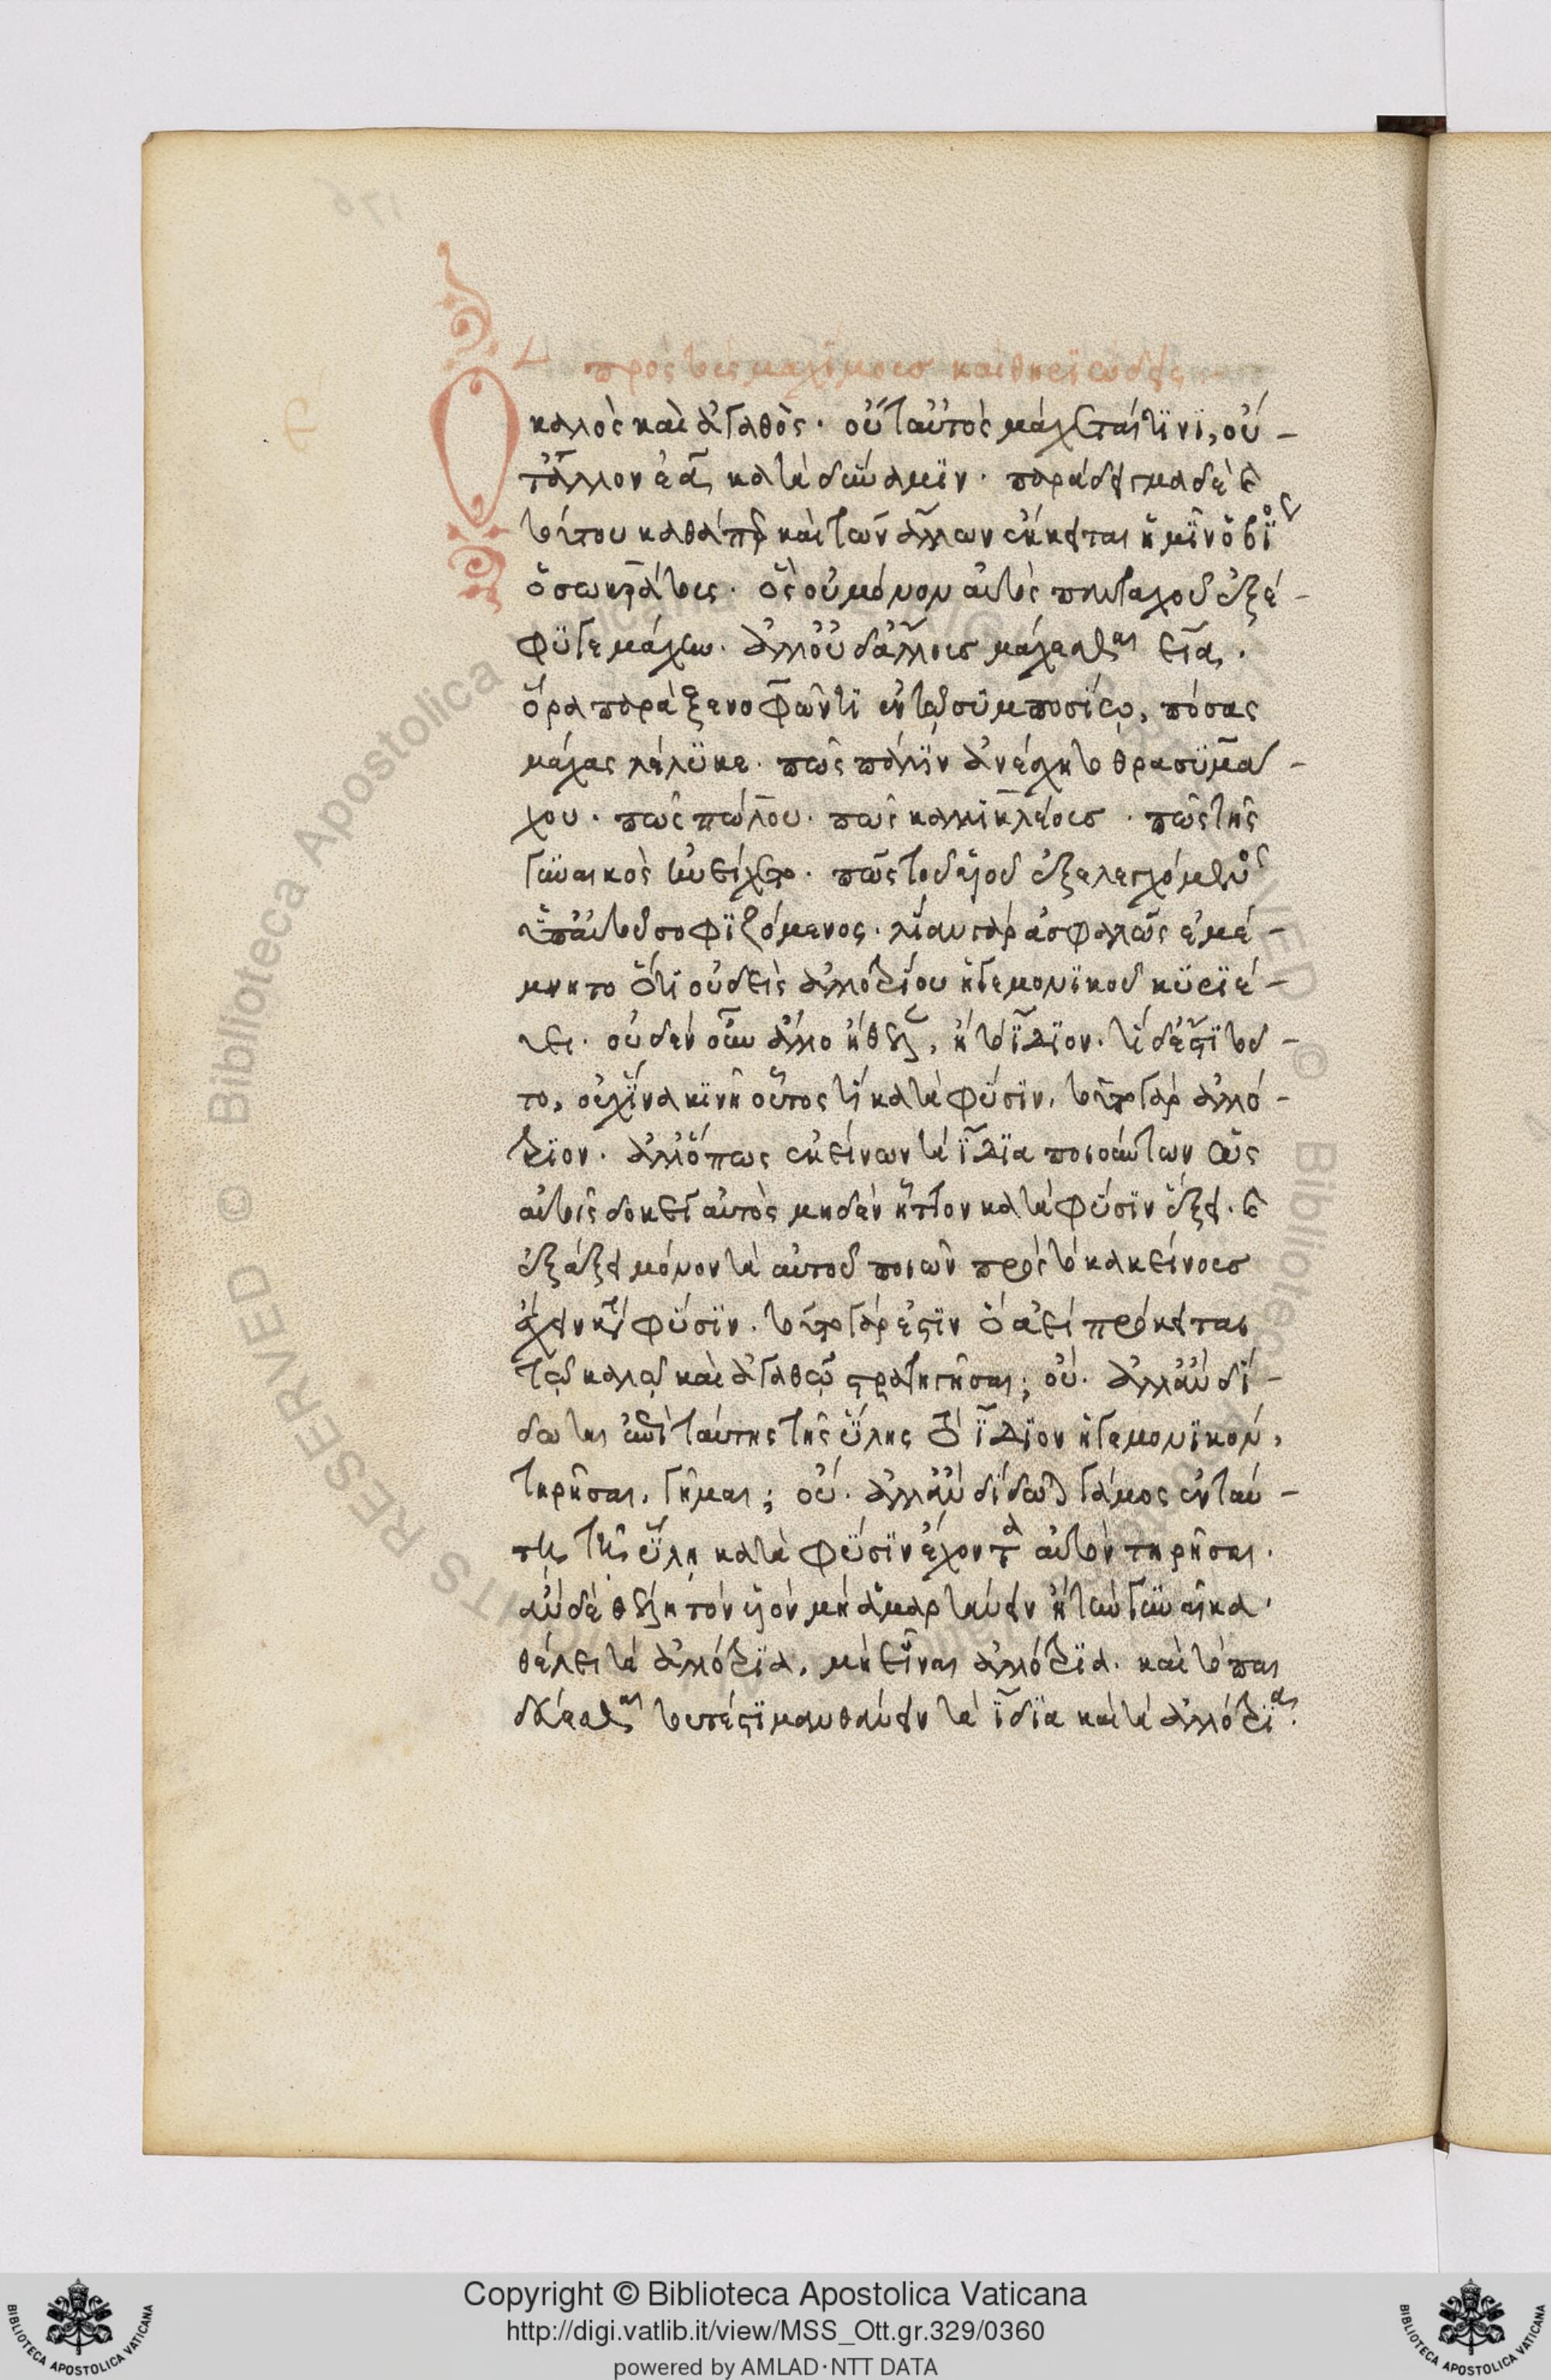 πρὸς τοὺς μαχίμους καὶ θηριώδεις
Ὁ καλὸς καὶ ἀγαθὸς· οὔτ αὐτὸς μάχεταί τινι, οὔ-
τ ἄλλον ἐᾷ κατὰ δύναμιν· παράδειγμα δὲ καὶ
τούτου καθάπερ καὶ τῶν ἄλλων ἔκκειται ἡμῖν ὁ βίος
ὁ σωκράτους· ὃς οὐ μόνον αὐτὸς πανταχοῦ ἐξέ-
φυγε μάχην· ἀλλ οὐδ ἄλλους μάχεσθαι εἴα.
ὅρα παρὰ ξενοφῶντι ἐν τῷ συμποσίῳ, πόσας
μάχας λέλυκε· πῶς πάλιν ἀνέσχητο θρασυμά-
χου· πῶς πώλου· πῶς καλλικλέους· πῶς τῆς
γυναικὸς ἠνείχετο· πῶς τοῦ υἱοῦ ἐξελεγχόμενος
ὑπ αὐτοῦ σοφιζόμενος· λίαν γὰρ ἀσφαλῶς ἐμέ-
μνητο ὅτι οὐδεὶς ἀλλοτρίου ἡγεμονικοῦ κυριεύ-
ει· οὐδὲν οὖν ἄλλο ἤθελεν, ἢ τὸ ἴδιον· τί δ ἐστι τοῦ-
το, οὐχ ἵνα κινῇ οὗτος τί κατὰ φύσιν, τοῦτο γὰρ ἀλλό-
τριον· ἀλλ ὅπως ἐκείνων τὰ ἴδια ποιούντων ὡς
αὐτοῖς δοκεῖ αὐτὸς μηδὲν ἧττον κατὰ φύσιν ἕξει· καὶ
ἐξάξει μόνον τὰ αὐτοῦ ποιῶν πρὸς τὸ κἀκείνους
ἔχειν κατὰ φύσιν· τοῦτο γάρ ἐστιν ὃ ἀεὶ πρόκειται
τῷ καλῷ καὶ ἀγαθῷ στρατηγῆσαι; οὔ· ἀλλ ἂν δι-
δῶται ἐπὶ ταύτης τῆς ὕλης τὸ ἴδιον ἡγεμονικόν,
τηρῆσαι, γῆμαι; οὔ· ἀλλ ἂν διδῶται γάμος ἐν ταύ-
τῃ τῇ ὕλῃ κατὰ φύσιν ἔχοντα αὑτὸν τηρῆσαι.
ἂν δὲ θέλῃ τὸν υἱὸν μὴ ἁμαρτάνειν ἢ τὴν γυναῖκα.
θέλει τὰ ἀλλότρια, μὴ εἶναι ἀλλότρια· καὶ τὸ παι
δεύεσθαι τοῦτ ἔστι μανθάνειν τὰ ἴδια καὶ τὰ ἀλλότρια.
Copyright © Biblioteca Apostolica Vaticana
http://digi.vatlib.it/view/MSS_Ott.gr.329/0360
powered by AMLAD·NTT DATA